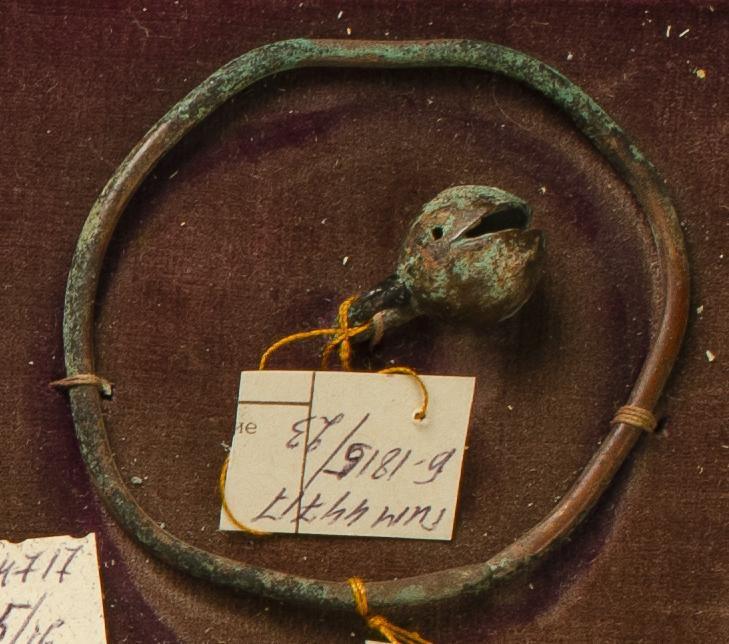 ГИМ 44717
Б-1815/
23
ие
4717
5/16